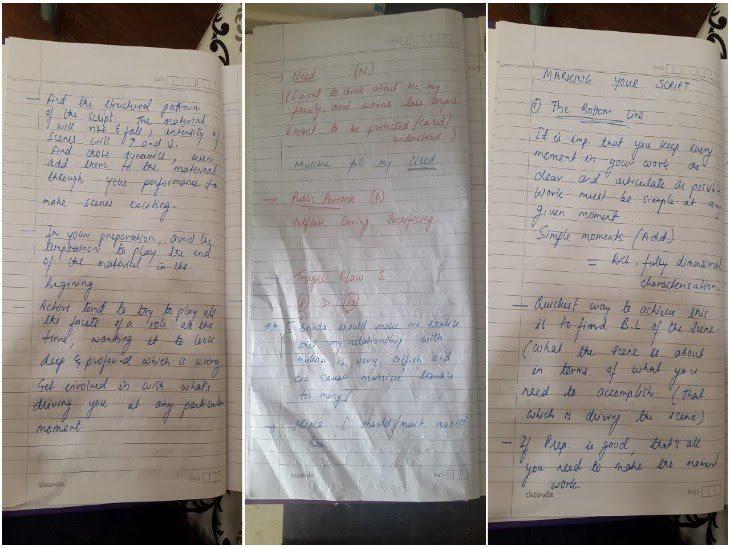 DATE
- Find the structural pattern
of the script. The material
will rise & fall, intensity of
scenes will ↑ and ↓.
Find those dynamics, even
add them to the material
through your performance to
make scenes exciting.
- In your preparation, avoid the
temptation to play the end
of the material in the
begining
- Actors tend to try to play all
the facets of a role all the
time, wanting it to look
deep & profound which is wrong
Get involved in with what's
driving you at any particular
moment.
classmate
PAGE
DATE
→ Need (N)
(I want to think about me, my
family, dont wanna lose anyone.
I want to be protected/cared/
understood)
fills my Need.
→ Public Persona (P)
selfless, Caring, Sacrificing.
Tragic flaw 2
P >
** should make me realise
that my relationship with
is very selfish and
can cause massive trouble
to many
→ Hence I should/must avoid
her.
classmate
PAGE
DATE
MARKING YOUR SCRIPT
① The Bottom Line.
It is imp. that you keep every
moment in your work as
clear and articulate as possible
Work must be simple at any
given moment
Simple moments (Add)
= Rich, fully dimensional
characterisation.
- Quickest way to achieve this
is to find B.L of the scene
(What the scene is about
in terms of what you
need to accomplish. (That
which is driving the scene)
- If Prep. is good, that's all
you need to make the moment
work.
classmate
PAGE